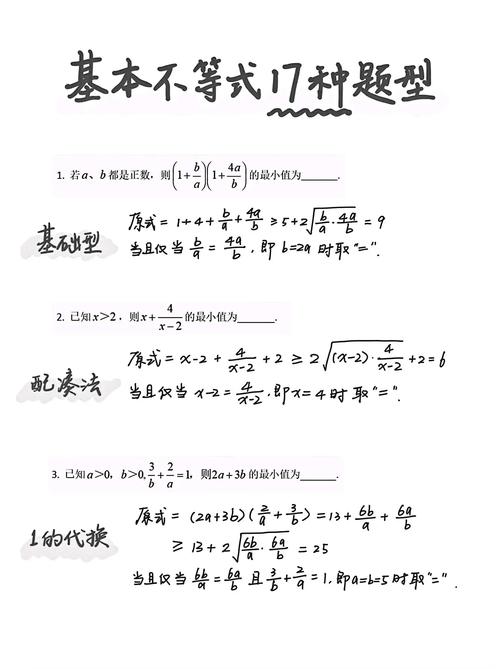 基本不等式17种题型
1. 若a、b都是正数，则(1+b/a)(1+4a/b)的最小值为______.
基础型
原式=1+4+b/a+4a/b≥5+2√(b/a·4a/b)=9
当且仅当b/a=4a/b，即b=2a时取"=".
2. 已知x>2，则x+4/(x-2)的最小值为______.
配凑法
原式=x-2+4/(x-2)+2≥2√((x-2)·4/(x-2))+2=6
当且仅当x-2=4/(x-2)，即x=4时取"=".
3. 已知a>0，b>0,3/b+2/a=1，则2a+3b的最小值为______.
1的代换
原式=(2a+3b)(2/a+3/b)=13+6b/a+6a/b
≥13+2√(6b/a·6a/b)=25
当且仅当6b/a=6a/b且3/b+2/a=1，即a=b=5时取"=".